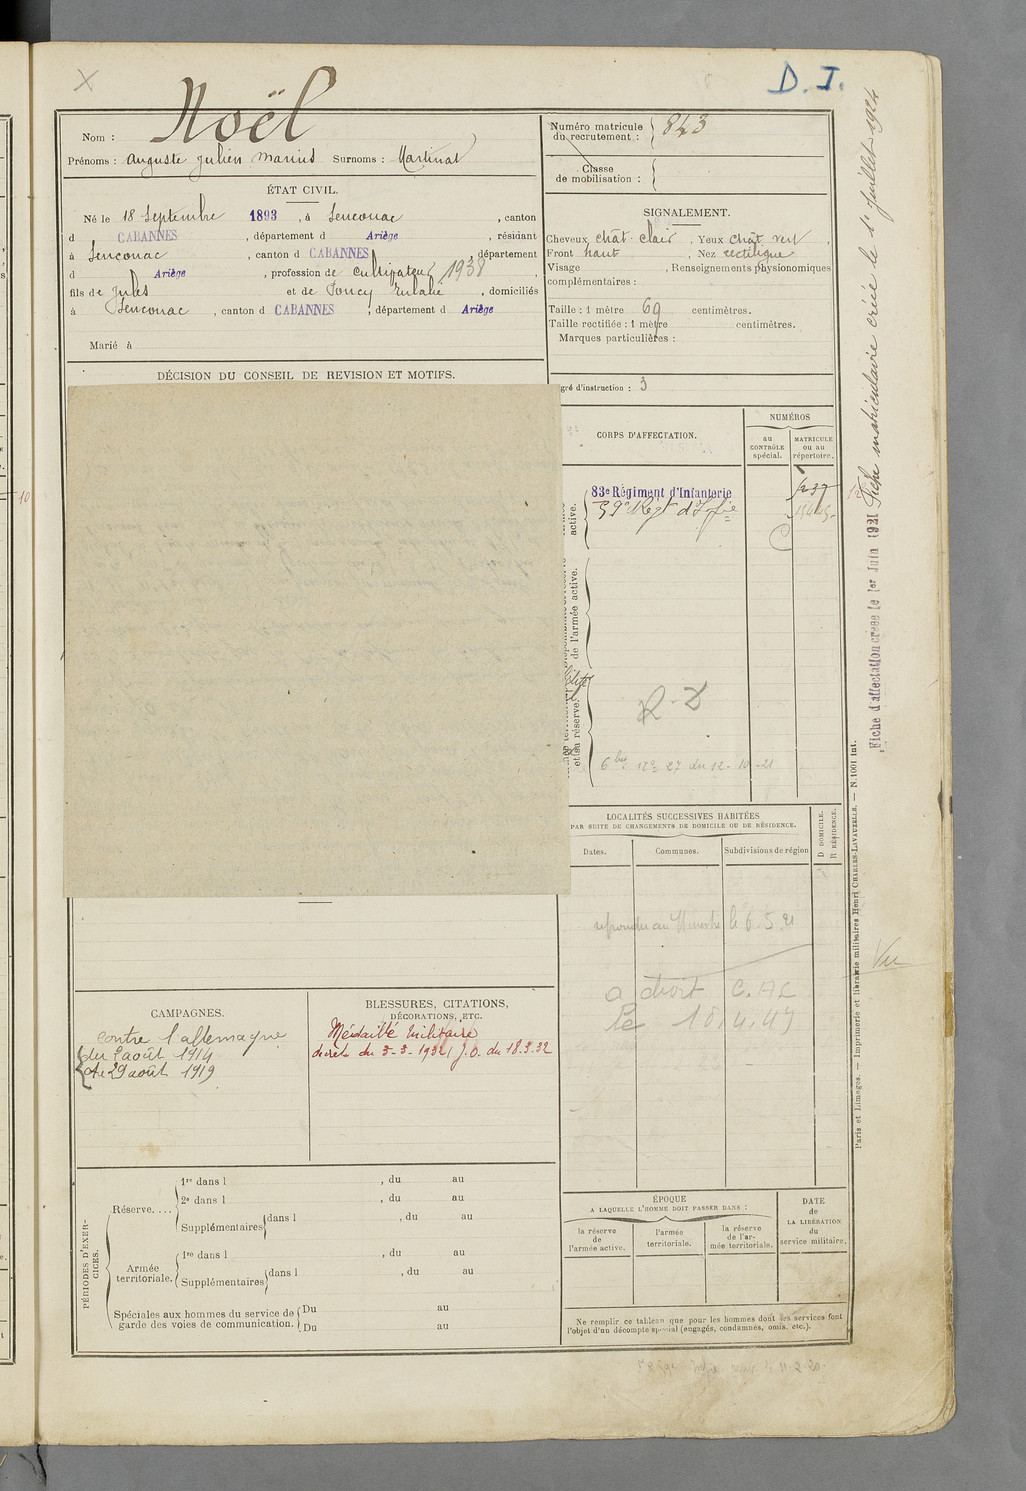 X
D. I.
Noël
Nom :
Prénoms : Auguste Julien Marius Surnoms : Martinat
ÉTAT CIVIL.
Né le 18 Septembre 1893, à Senconac, canton
d CABANNES, département d Ariège, résidant
à Senconac, canton d CABANNES, département
d Ariège, profession de cultivateur 1938,
fils de Jules et de Poncy Eulalie, domiciliés
à Senconac, canton d CABANNES, département d Ariège
Marié à
DÉCISION DU CONSEIL DE REVISION ET MOTIFS.
Numéro matricule du recrutement : 843
Classe de mobilisation :
SIGNALEMENT.
Cheveux chât. clair, Yeux chât vert,
Front haut, Nez rectiligne
Visage , Renseignements physionomiques
complémentaires :
Taille : 1 mètre 69 centimètres.
Taille rectifiée : 1 mètre centimètres.
Marques particulières :
gré d'instruction : 3
CORPS D'AFFECTATION.
NUMÉROS
au CONTRÔLE spécial.
MATRICULE ou au répertoire.
active.
83e Régiment d'Infanterie
59e Régt d'Infie
de l'armée active.
et sa réserve.
R-D
6 bis
27 du 12-10-21
LOCALITÉS SUCCESSIVES HABITÉES
PAR SUITE DE CHANGEMENTS DE DOMICILE OU DE RÉSIDENCE.
Dates.
Communes.
Subdivisions de région
D DOMICILE.
R RÉSIDENCE.
le 6.5.21
a droit C.AC
le 18.4.47
CAMPAGNES.
contre l'allemagne
du 2 août 1914
au 29 août 1919
BLESSURES, CITATIONS,
DÉCORATIONS, ETC.
Médaillé Militaire
décret du 3-3-1932 J.O. du 18.3.32
PÉRIODES D'EXERCICES.
Réserve....
1re dans l , du au
2e dans l , du au
Supplémentaires dans l , du au
Armée territoriale.
1re dans l , du au
Supplémentaires dans l , du au
Spéciales aux hommes du service de garde des voies de communication.
Du au
Du au
ÉPOQUE
A LAQUELLE L'HOMME DOIT PASSER DANS :
la réserve de l'armée active.
l'armée territoriale.
la réserve de l'armée territoriale.
DATE de LA LIBÉRATION du service militaire.
Ne remplir ce tableau que pour les hommes dont les services font
l'objet d'un décompte spécial (engagés, condamnés, omis, etc.).
Fiche d'affectation créée le 1er Juin 1921
Fiche matriculaire créée le 1er Juillet 1924
Paris et Limoges. — Imprimerie et librairie militaires Henri CHARLES-LAVAUZELLE. — N. 1001 int.
Vu
10